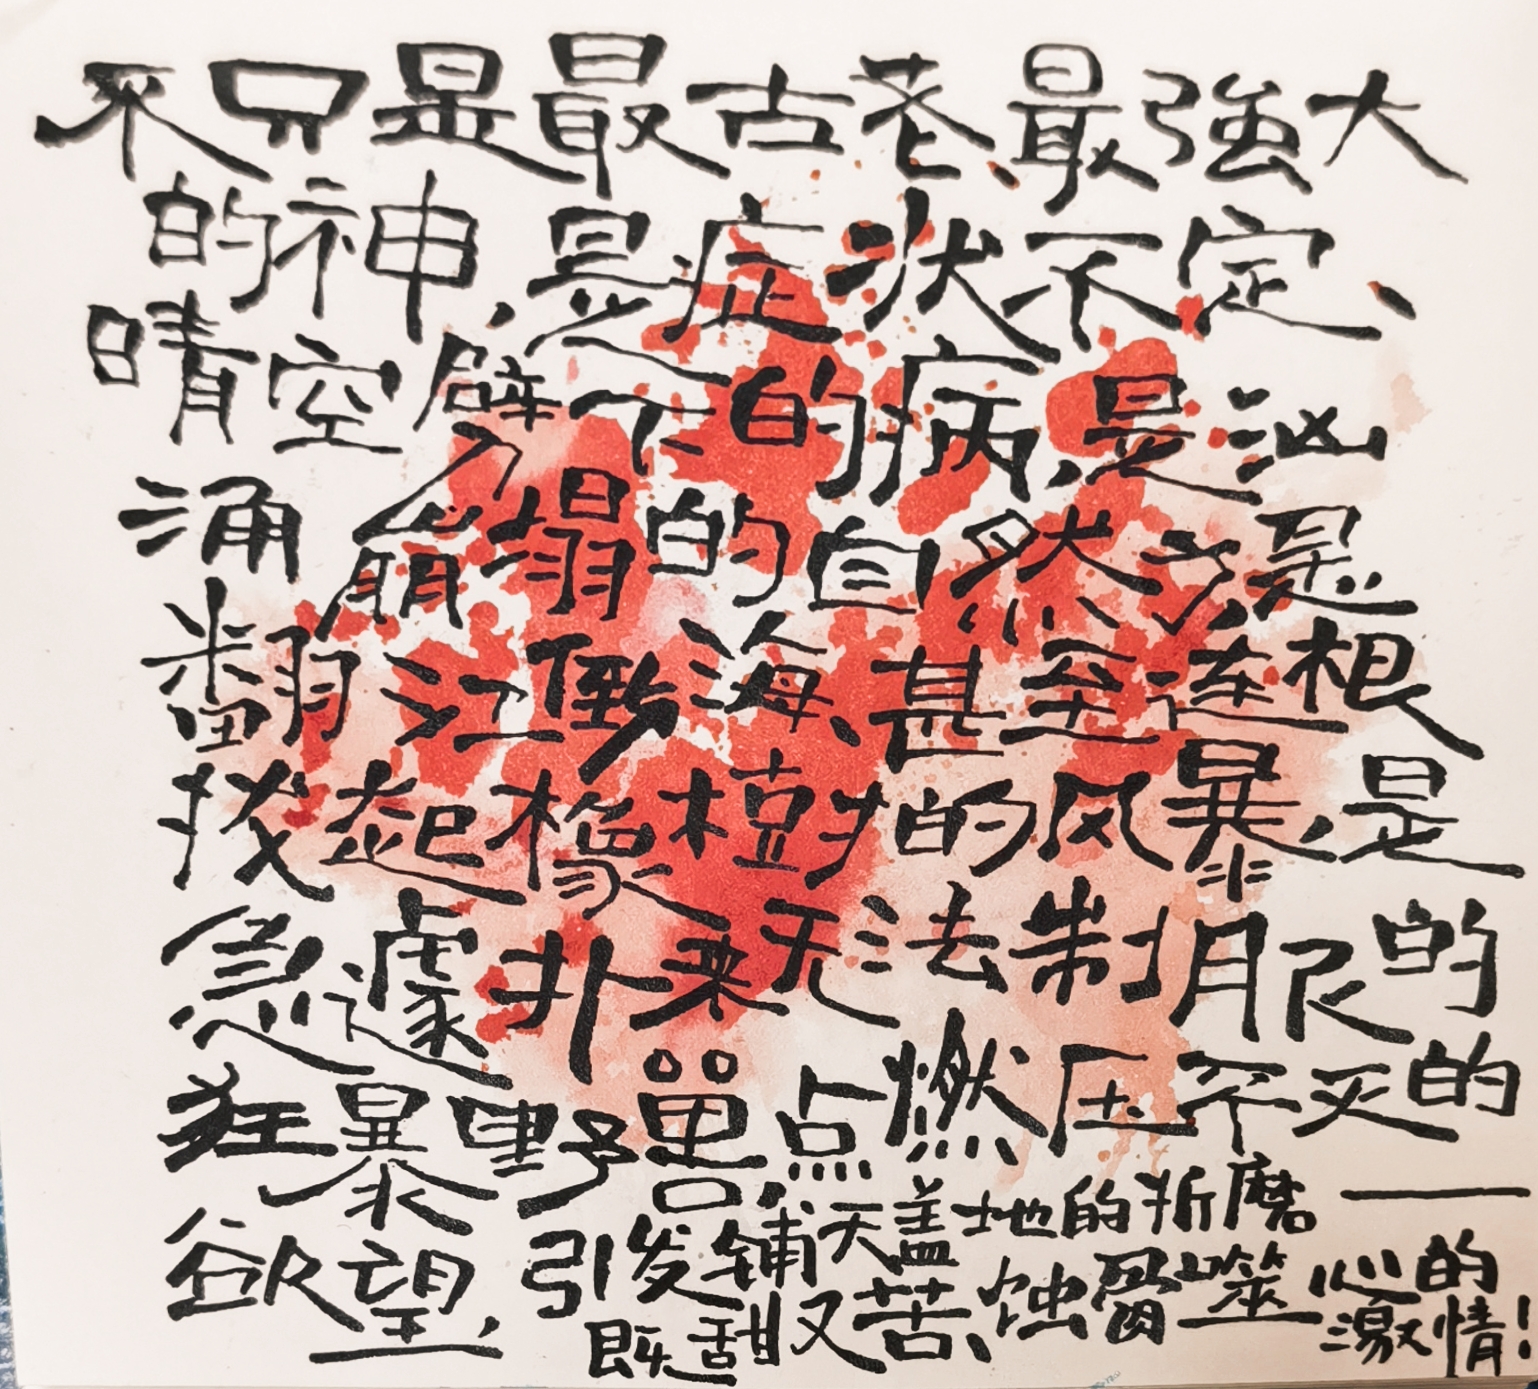 不只是最古老、最強大
的神,是症状不定、
晴空劈下的病,是汹
涌崩塌的自然力,是
翻江倒海、甚至連根
拔起橡樹的风暴,是
急遽扑来无法制服的
狂暴野兽,点燃压不灭的
欲望,引发铺天盖地的折磨——
既甜又苦、蚀骨噬心的
激情!